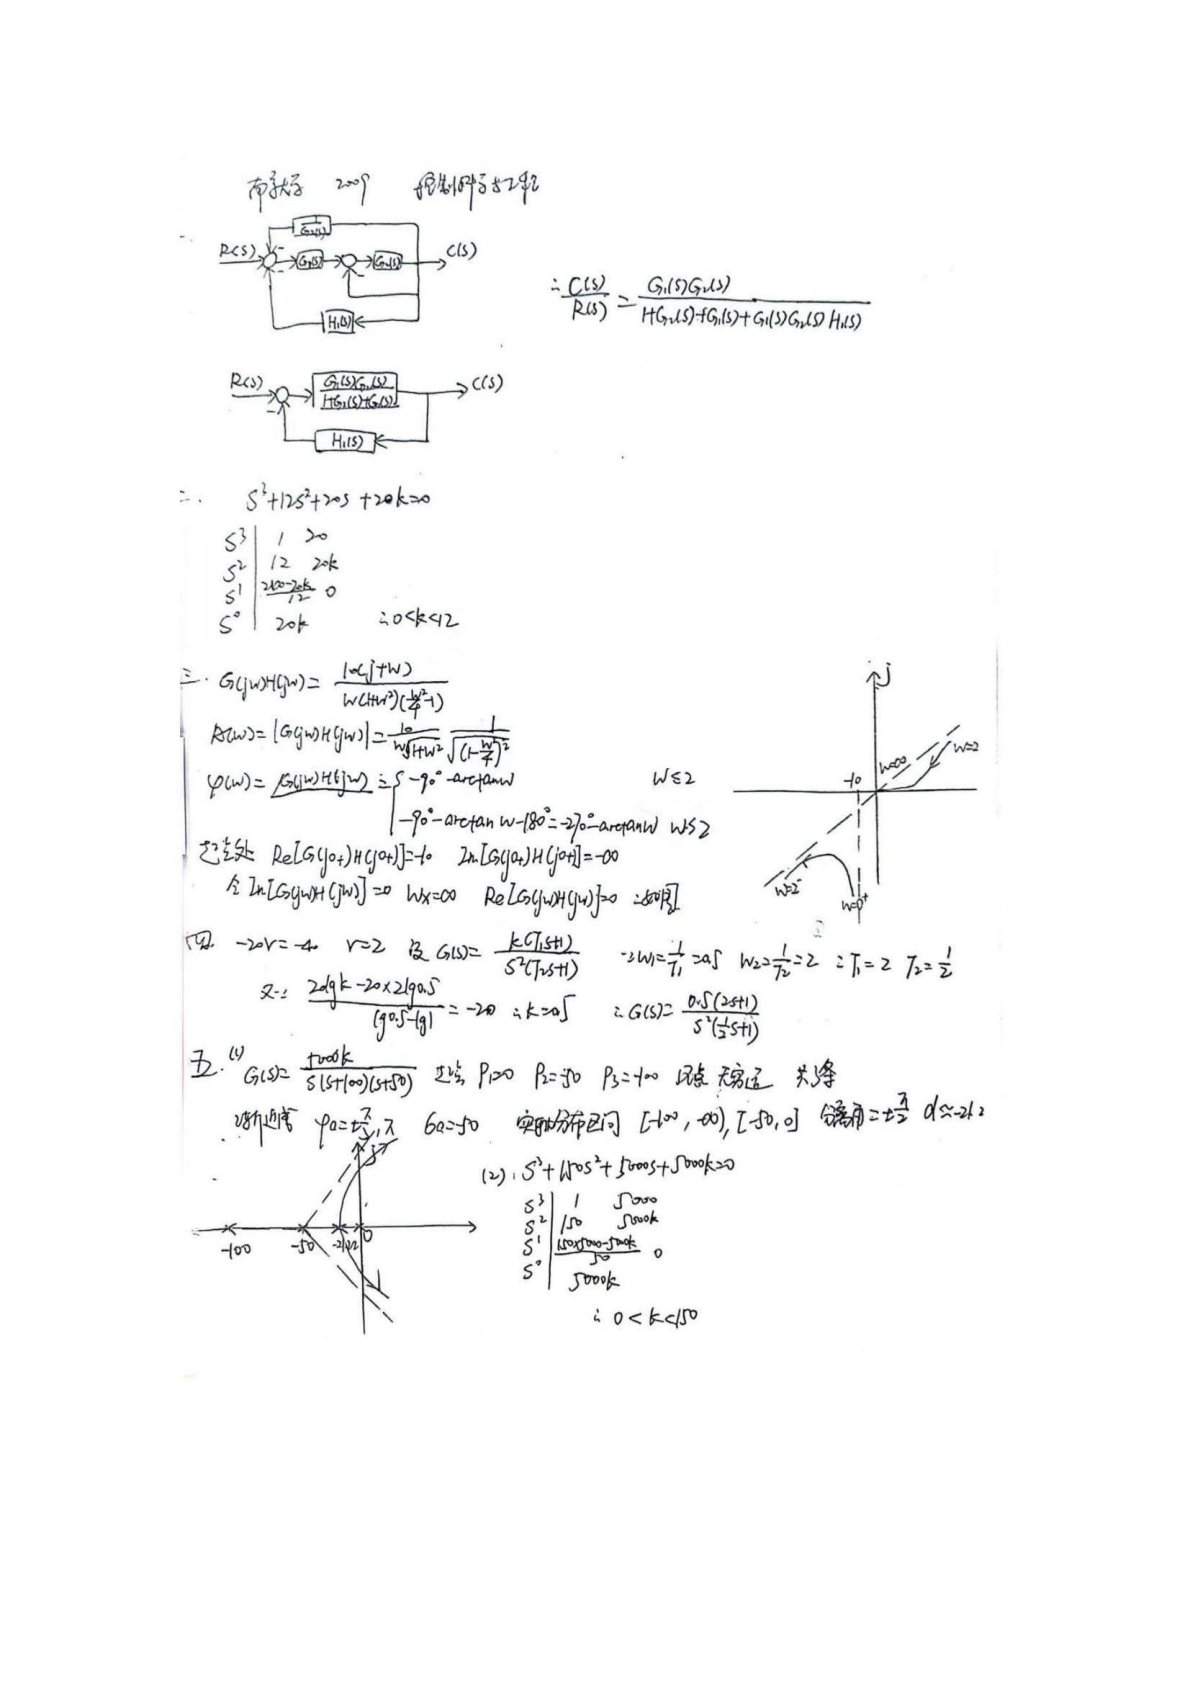 南京大学 2009 控制科学与工程
一.
1/G2(s)
R(s) G1(s) G2(s) C(s)
H1(s)
∴ C(s)/R(s) = G1(s)G2(s) / (1+G2(s)+G1(s)+G1(s)G2(s)H1(s))
R(s) G1(s)G2(s) / (1+G2(s)+G1(s)) C(s)
H1(s)
二. S³+12S²+20S+20k=0
S³ 1 20
S² 12 20k
S¹ /12 0
S⁰ 20k ∴0<k<12
三. G(jw)H(jw)= 10(j+w) / (w(1+w²)(w²/4-1))
A(w)=|G(jw)H(jw)|= 10/(w√(1+w²)) 1/√((1-w²/4)²)
φ(w)=∠G(jw)H(jw) = { -90°-arctanw w≤2
-90°-arctanw-180°=-270°-arctanw
起点处 Re[G(j0+)H(j0+)]=-10 Im[G(j0+)H(j0+)]=-∞
令Im[G(jw)H(jw)]=0 Wx=∞ Re[G(jw)H(jw)]=0 ∴如图
j
w=2
w=∞
-10
w=2⁻
w=0⁺
四. -20v=-40 v=2 设 G(s)= k(T1s+1) / (s²(T2s+1)) ∵w1=1/T1=0.5 w2=1/T2=2 ∴T1=2 T2=1/2
又∵ (20lgk-20×2lg0.5)/(lg0.5-lg1) = -20 ∴k=0.5 ∴G(s)= 0.5(2s+1) / (s²(½s+1))
五. (1) G(s)= 5000k / (s(s+100)(s+50)) 起点 P1=0 P2=-50 P3=-100 终点 无穷远 共3条
渐近线 φa=±π/3,π σa=-50 实轴分布区间 [-100,-∞),[-50,0] 分离角=±π/2 d≈-21.2
j
-100 -50 0
(2). S³+150S²+5000S+5000k=0
S³ 1 5000
S² 150 5000k
S¹ (150×5000-5000k)/ 0
S⁰ 5000k
∴ 0<k<150